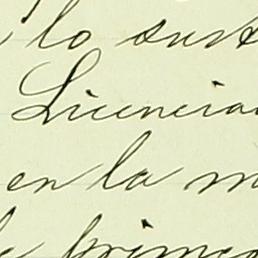 lo sust
Licencia
en la m
la prime